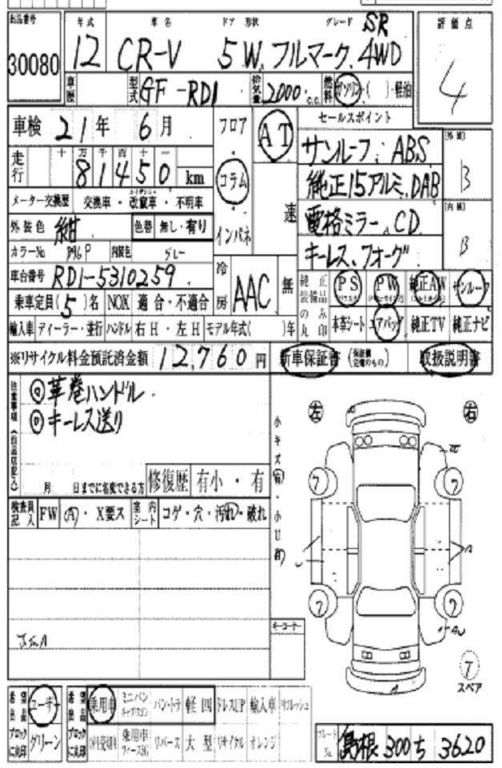 出品番号 年式 車名 ドア 形状 グレード 評価点
30080 12 CR-V 5W. フルマーク. 4WD SR
4
車歴 型式 GF-RD1 排気量 2000 c.c. 燃料 ガソリン・( )・軽油
車検 21年 6月 フロア AT セールスポイント
走行 十万千百十一
81450 km コラム
サンルーフ: ABS
純正15アルミ. DAB
外装 B
メーター交換歴 交換車・改竄車・不明車
外装色 紺 色替 無し・有り インパネ 速
電格ミラー. CD
キーレス. フォーグ
内装 B
カラーNo 内装色 グレー
車台番号 RD1-5310259 冷房 AAC 無
純正装備品のみ○印 PS PW 純正AW サンルーフ
乗車定員(5)名 NOX 適合・不適合
本革シート エアバッグ 純正TV 純正ナビ
輸入車 ディーラー・並行 ハンドル 右H・左H モデル年式( )年
※リサイクル料金預託済金額 12,760円 新車保証書 取扱説明書
注意事項
◎革巻ハンドル
◎キーレス送り
左 右
月 日までに名変できる方 修復歴 有小・有
検査員記入 FW X要ス 室内シート コゲ・穴・汚れ・破れ
キーコーナー
スペア
ユーザー 乗用車 ミニバン バン・トラ 軽四 ドレスUP 輸入車 リフレッシュ
グリーン 乗用車 リバース 大型 リサイクル オレンジ
プレートNo. 島根 300 ち 3620